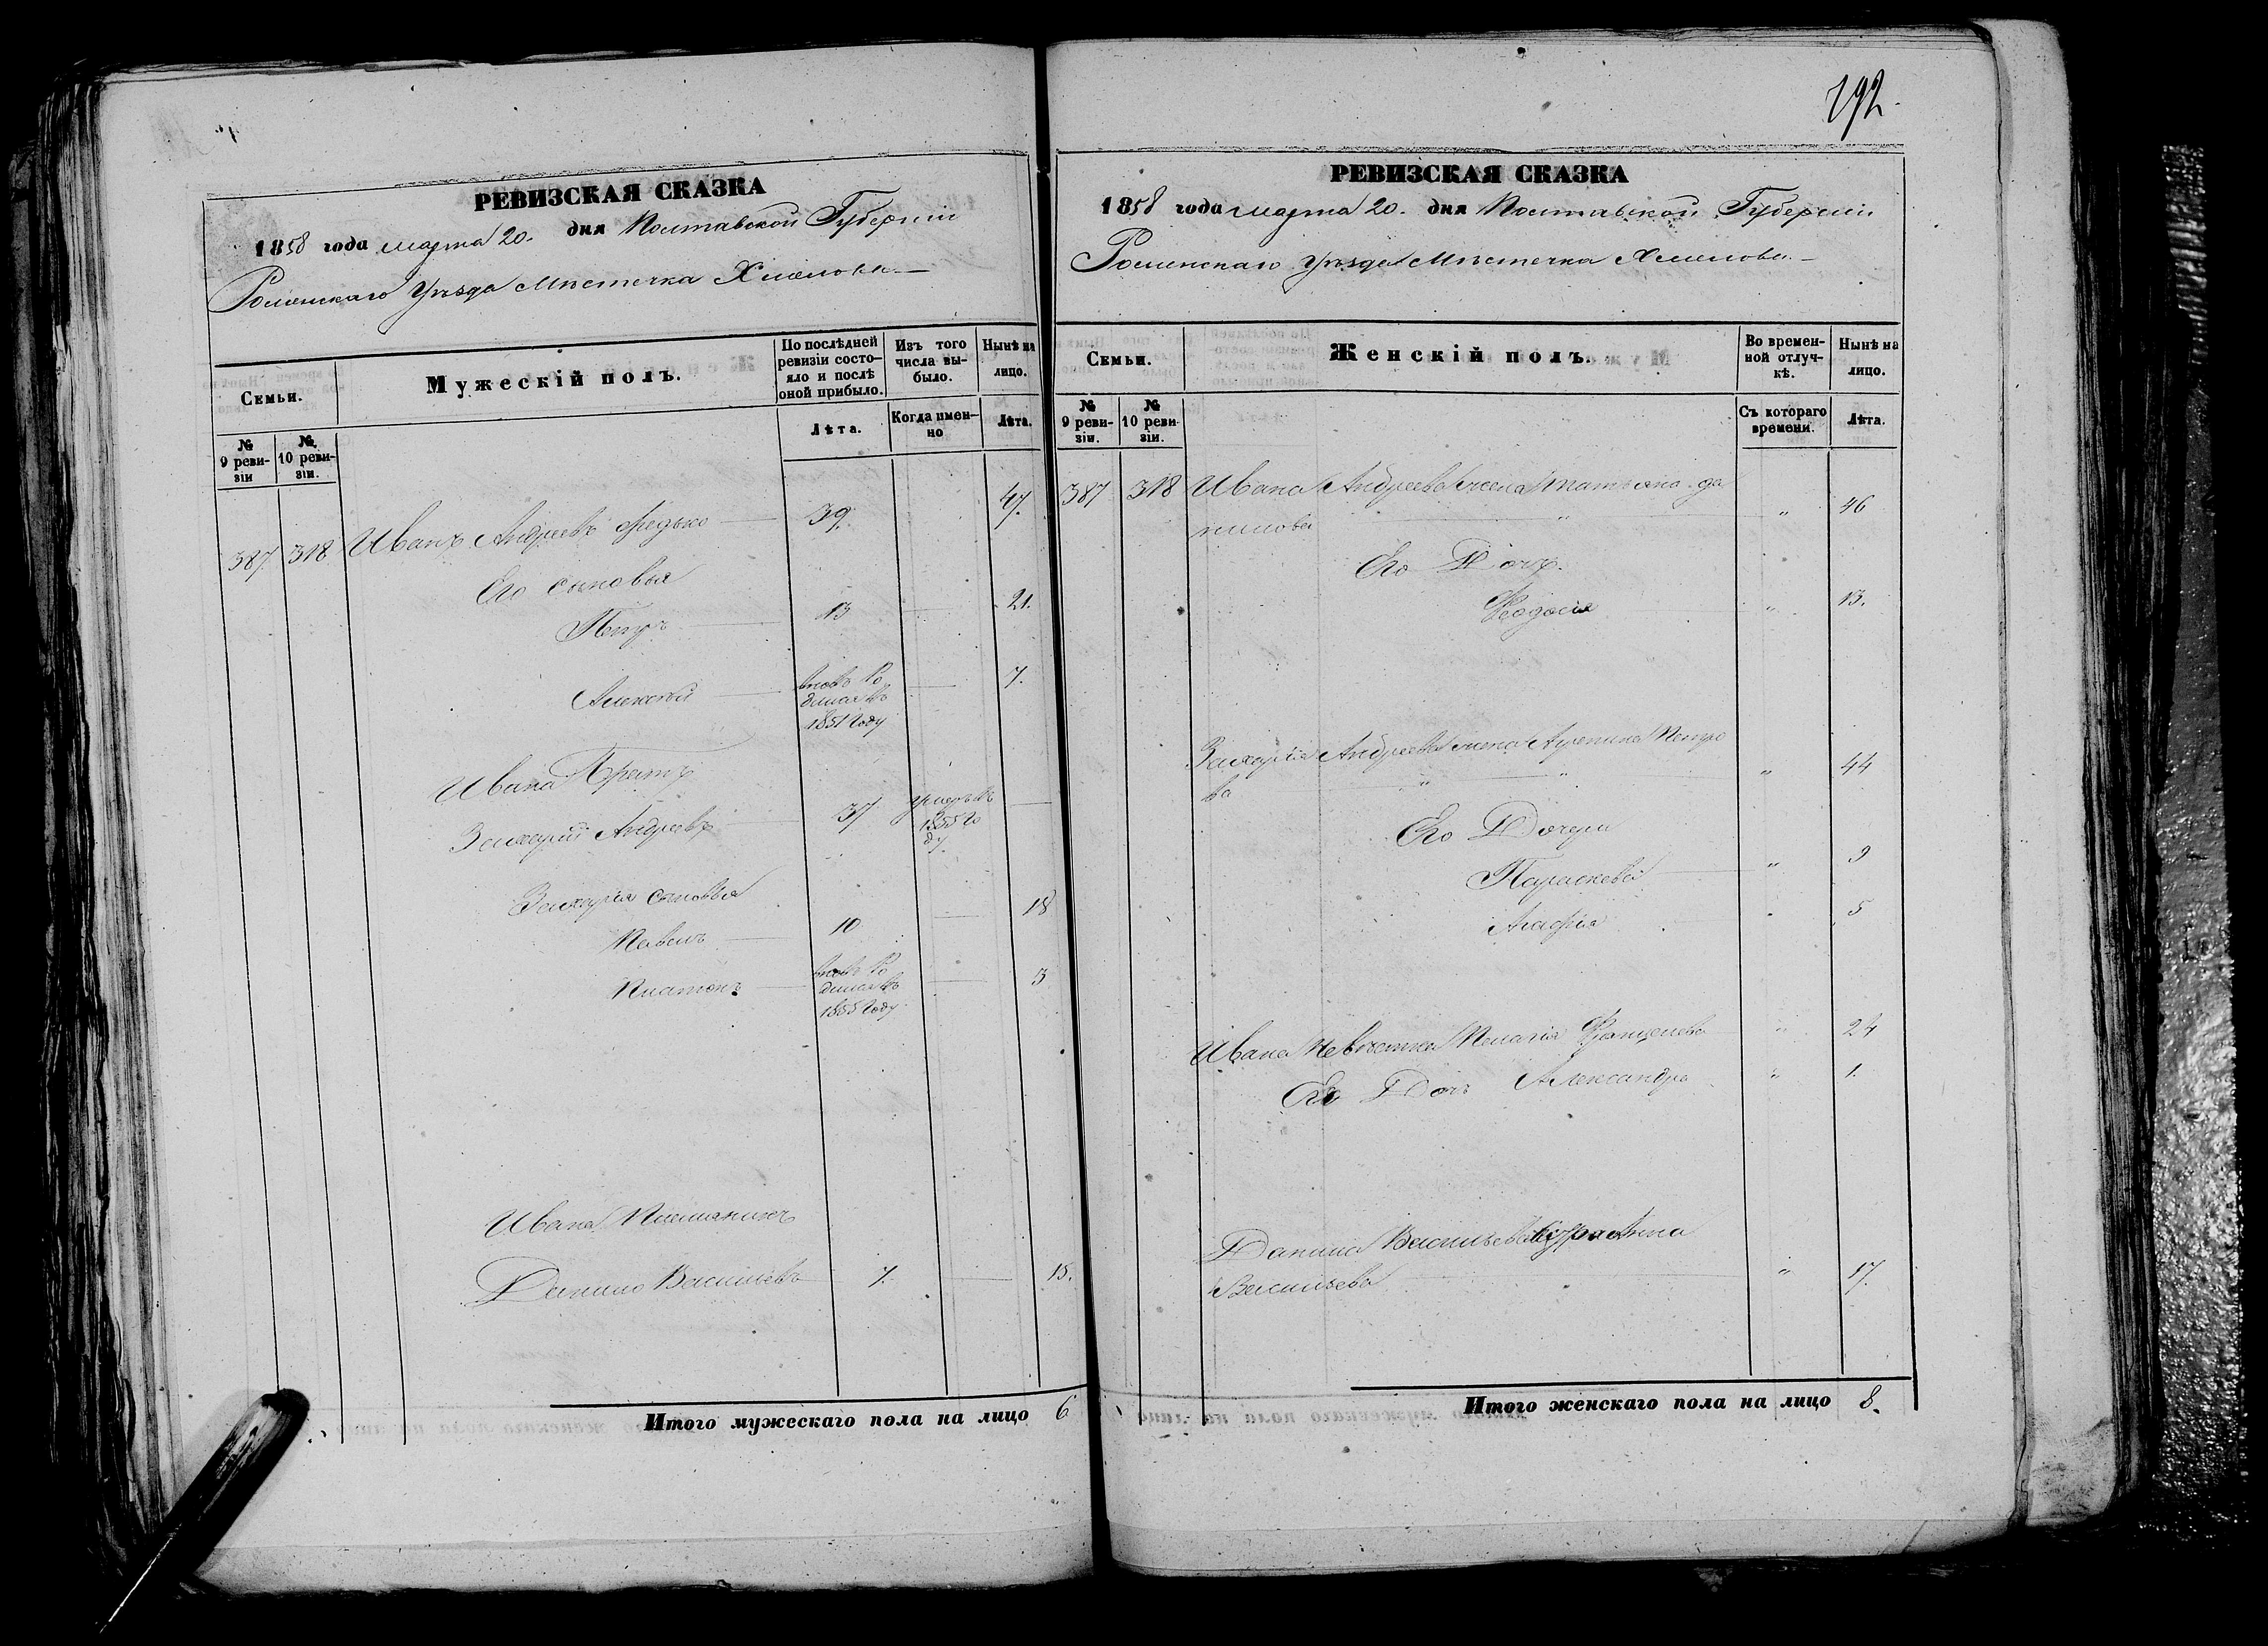 192.
РЕВИЗСКАЯ СКАЗКА
1858 года марта 20. дня Полтавской Губерніи
Роменскаго Уѣзда Мѣстечка Хмѣлова
Семьи.
Мужескій полъ.
По послѣдней ревизіи состо-
яло и послѣ
оной прибыло.
Изъ того
числа вы-
было.
Нынѣ на
лицо.
№
9 реви-
зіи
№
10 реви-
зіи.
Лѣта.
Когда имен-
но
Лѣта.
387 318 Иванъ Андреевъ Редько 39. 47.
Его сыновья
Петръ 13 21.
Алексѣй вновь Ро
дился въ
1851 Году 7.
Ивана Братъ
Захарій Андреевъ 37 умеръ въ
1855 Го
ду
Захарія сыновья
Павелъ 10 18
Платонъ вновь Ро
дился въ
1855 Году 3
Ивана Племяникъ
Данило Васильевъ 7. 15.
Итого мужескаго пола на лицо 6
РЕВИЗСКАЯ СКАЗКА
1858 года марта 20. дня Полтавской Губерніи
Роменскаго Уѣзда Мѣстечка Хмѣлова
Семьи.
Женскій полъ.
Во времен-
ной отлуч-
кѣ.
Нынѣ на
лицо.
№
9 реви-
зіи.
№
10 реви
зіи.
Съ котораго
времени.
Лѣта.
387 318 Ивана Андреева жена Татьяна Да
нилова " " 46
Его Дочь
Феодосія " 13.
Захарія Андреева жена Агрепина Петро
ва " " " 44
Его Дочери
Параскева " 9
Агафія " 5
Ивана Невѣстка Пелагія " 24
Его Дочь Александра " 1.
Данила Васильева сестра Анна
Васильева " 17.
Итого женскаго пола на лицо 8.